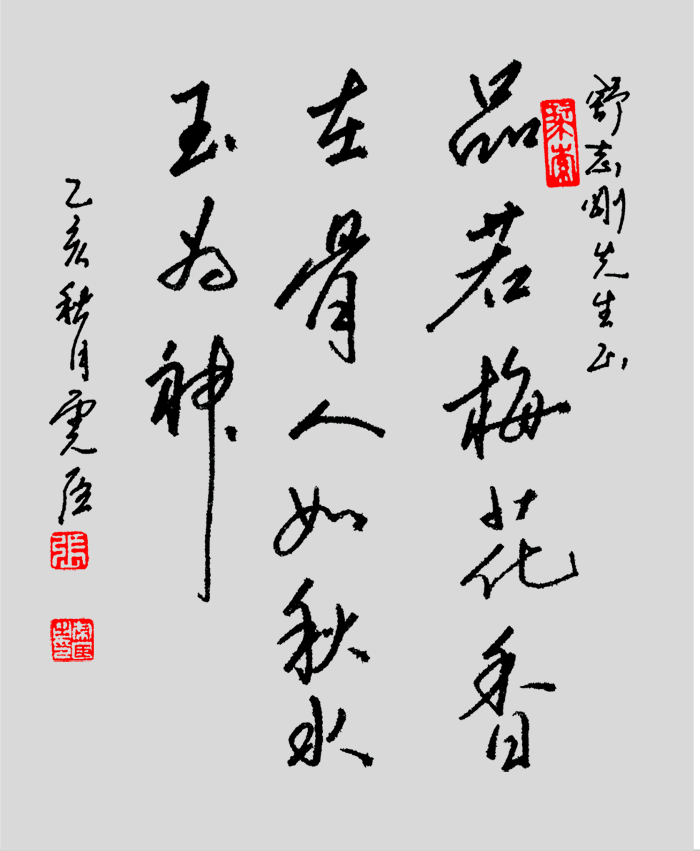 舒志刚先生正
品若梅花香
在骨人如秋水
玉为神
乙亥秋月
张